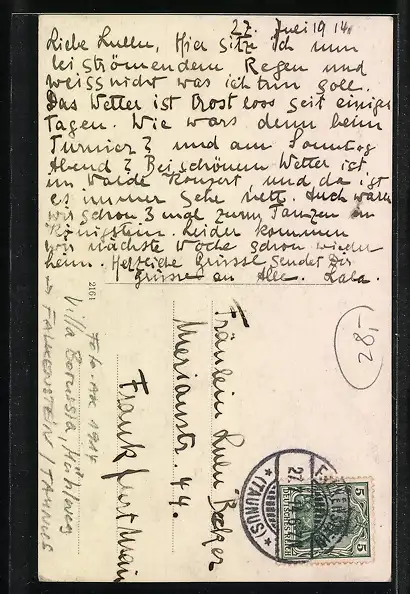 27. Juli 1914.
Liebe Lullu, Hier sitze ich nun
bei strömendem Regen und
weiss nicht was ich tun soll.
Das Wetter ist trostloos seit einigen
Tagen. Wie wars denn beim
Turnier? und am Sonntag
Abend? Bei schönem Wetter ist
im Walde Konzert, und da ist
es immer sehr nett. Auch waren
wir schon 3 mal zum Tanzen in
Königstein. Leider kommen
wir nächste Woche schon wieder
heim. Herzliche Grüsse sendet Dir
Grüsse an Alle. Lala.
2161
Fräulein Lulu Becker
Merianstr. 44.
Frankfurt Main
Foto. AK 1914
Villa Borussia, Mühlweg
→ FALKENSTEIN / TAUNUS
28,-
(TAUNUS)
27
5 5
DEUTSCHES REICH